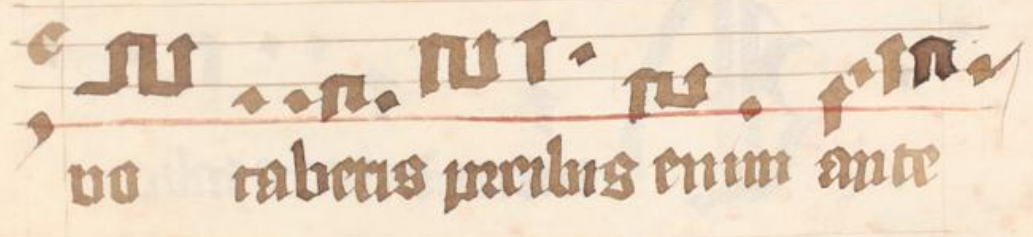 vo caberis precibus enim ante